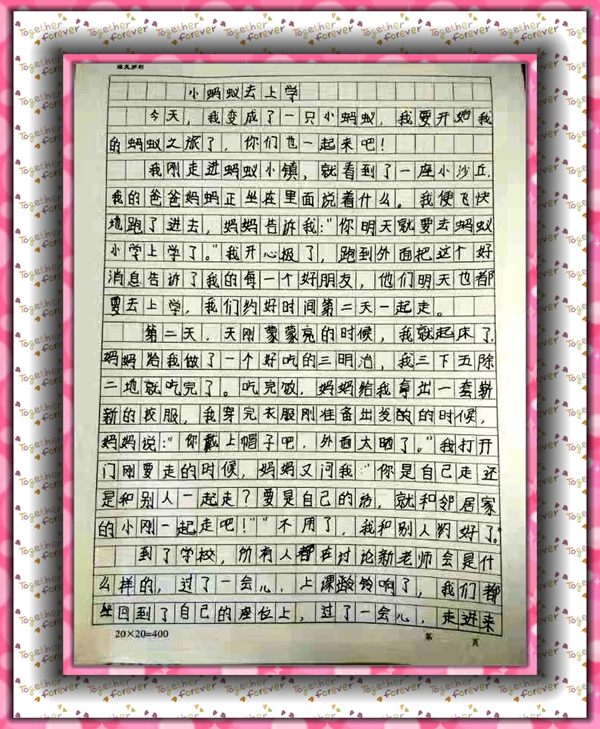 小蚂蚁去上学
今天，我变成了一只小蚂蚁，我要开始我
的蚂蚁之旅了，你们也一起来吧！
我刚走进蚂蚁小镇，就看到了一座小沙丘，
我的爸爸妈妈正坐在里面说着什么。我便飞快
地跑了进去，妈妈告诉我：“你明天就要去蚂蚁
小学上学了。”我开心极了，跑到外面把这个好
消息告诉了我的每一个好朋友，他们明天也都
要去上学，我们约好时间第二天一起走。
第二天，天刚蒙蒙亮的时候，我就起床了，
妈妈给我做了一个好吃的三明治，我三下五除
二地就吃完了。吃完饭，妈妈给我拿出一套崭
新的校服，我穿完衣服刚准备出发的的时候，
妈妈说：“你戴上帽子吧，外面太晒了。”我打开
门刚要走的时候，妈妈又问我“你是自己走还
是和别人一起走？要是自己的话，就和邻居家
的小刚一起走吧！”“不用了，我和别人约好了。”
到了学校，所有人都在讨论新老师会是什
么样的，过了一会儿，上课铃响了，我们都
坐回到了自己的座位上，过了一会儿，走进来
20×20=400
第 页
Together forever